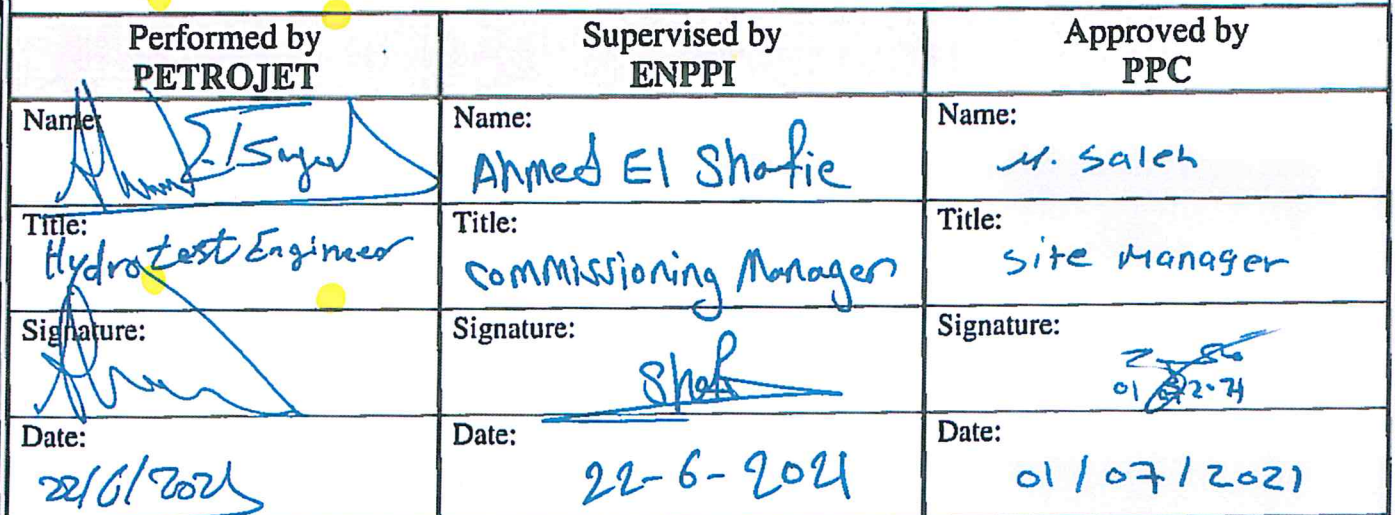 Performed by
PETROJET
Supervised by
ENPPI
Approved by
PPC
Name:
El Sayed
Name:
Ahmed El Shafie
Name:
M. Saleh
Title:
Hydrotest Engineer
Title:
Commissioning Manager
Title:
Site Manager
Signature:
Signature:
Shafi
Signature:
Date:
22/6/2021
Date:
22-6-2021
Date:
01/07/2021